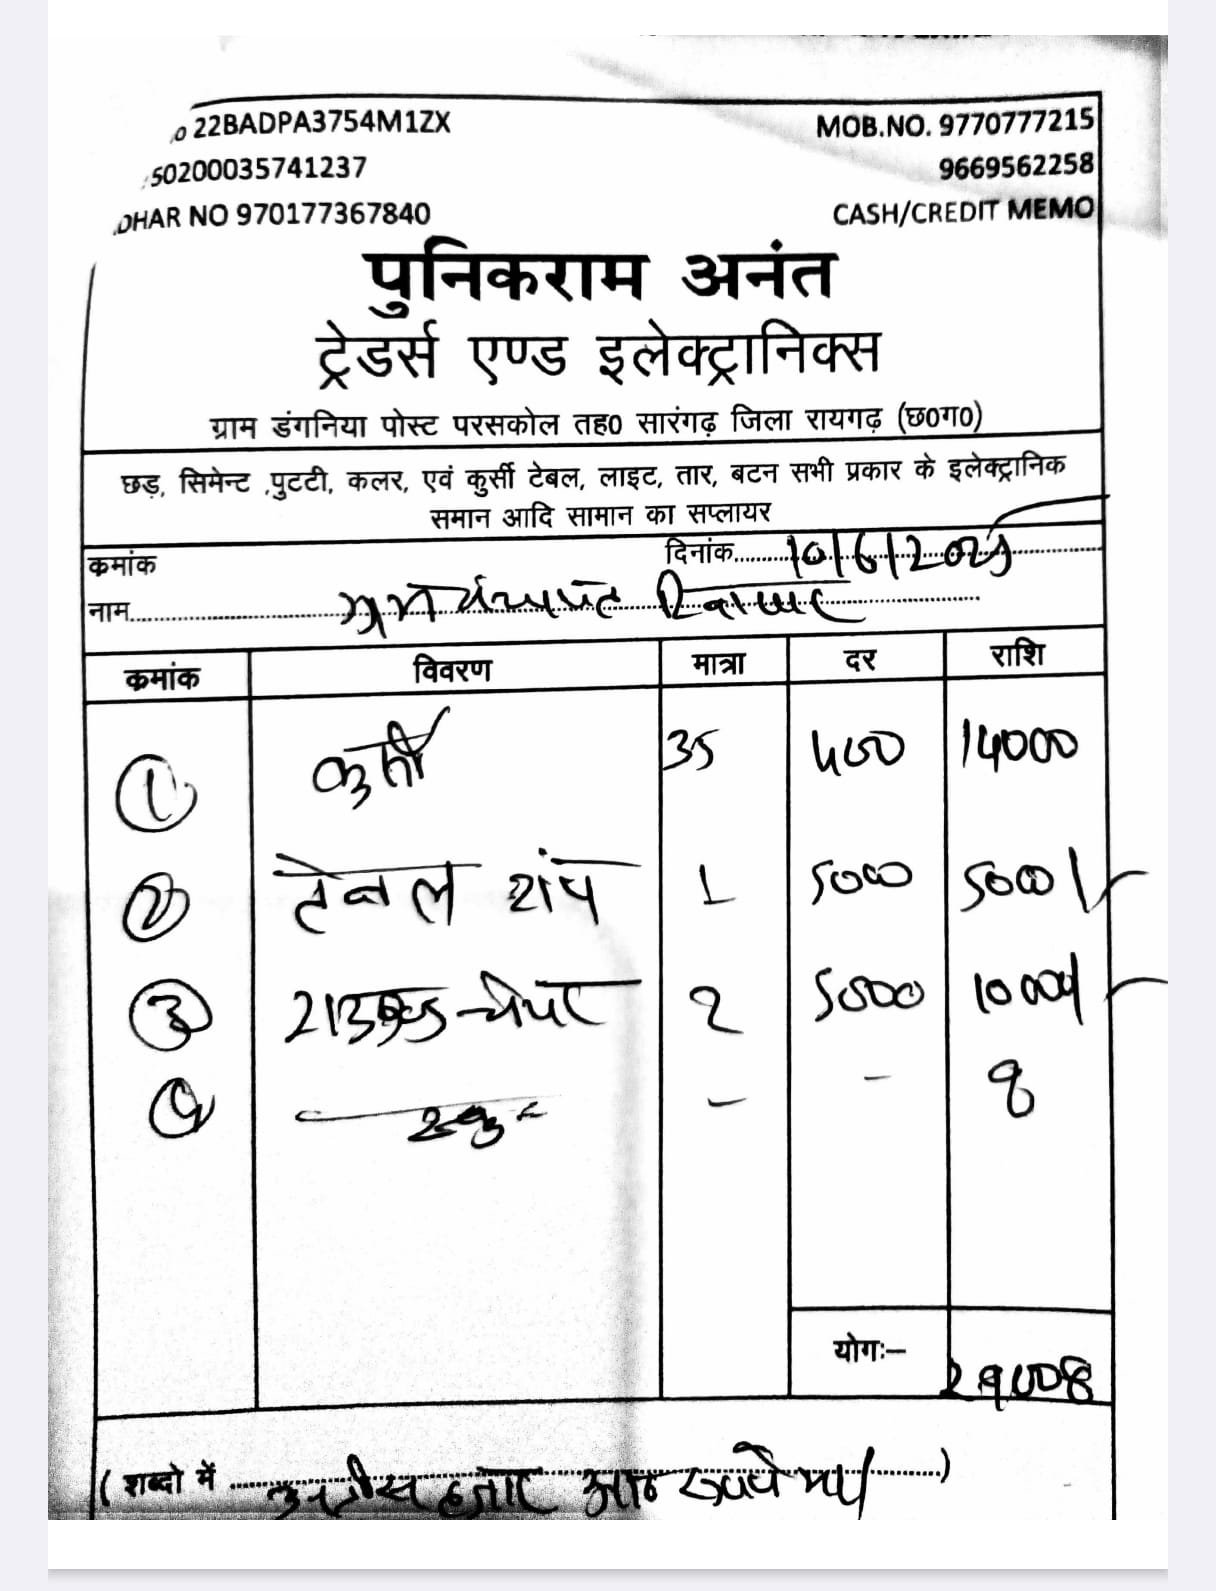 22BADPA3754M1ZX
MOB.NO. 9770777215
50200035741237
9669562258
DHAR NO 970177367840
CASH/CREDIT MEMO
पुनिकराम अनंत
ट्रेडर्स एण्ड इलेक्ट्रानिक्स
ग्राम डंगनिया पोस्ट परसकोल तह0 सारंगढ़ जिला रायगढ़ (छ0ग0)
छड़, सिमेन्ट ,पुटटी, कलर, एवं कुर्सी टेबल, लाइट, तार, बटन सभी प्रकार के इलेक्ट्रानिक
समान आदि सामान का सप्लायर
कमांक
दिनांक..........10/6/2025
नाम.......ग्राम पंचायत
क्रमांक विवरण मात्रा दर राशि
1 कुर्सी 35 400 14000
2 टेबल 1 5000 5000/-
3 2 5000 10000/-
4 - - 8
योगः– 29008
( शब्दो में ......उनतीस हजार आठ रूपये मा/.........)